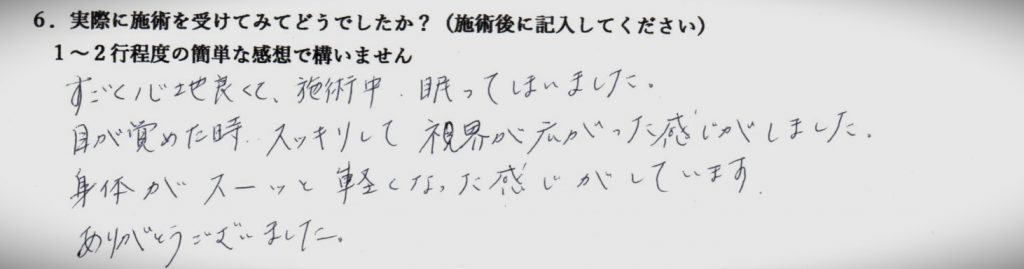 6．実際に施術を受けてみてどうでしたか？（施術後に記入してください）
1～2行程度の簡単な感想で構いません
すごく心地良くて、施術中 眠ってしまいました。
目が覚めた時 スッキリして 視界が広がった感じがしました。
身体がスーッと軽くなった感じがしています。
ありがとうございました。